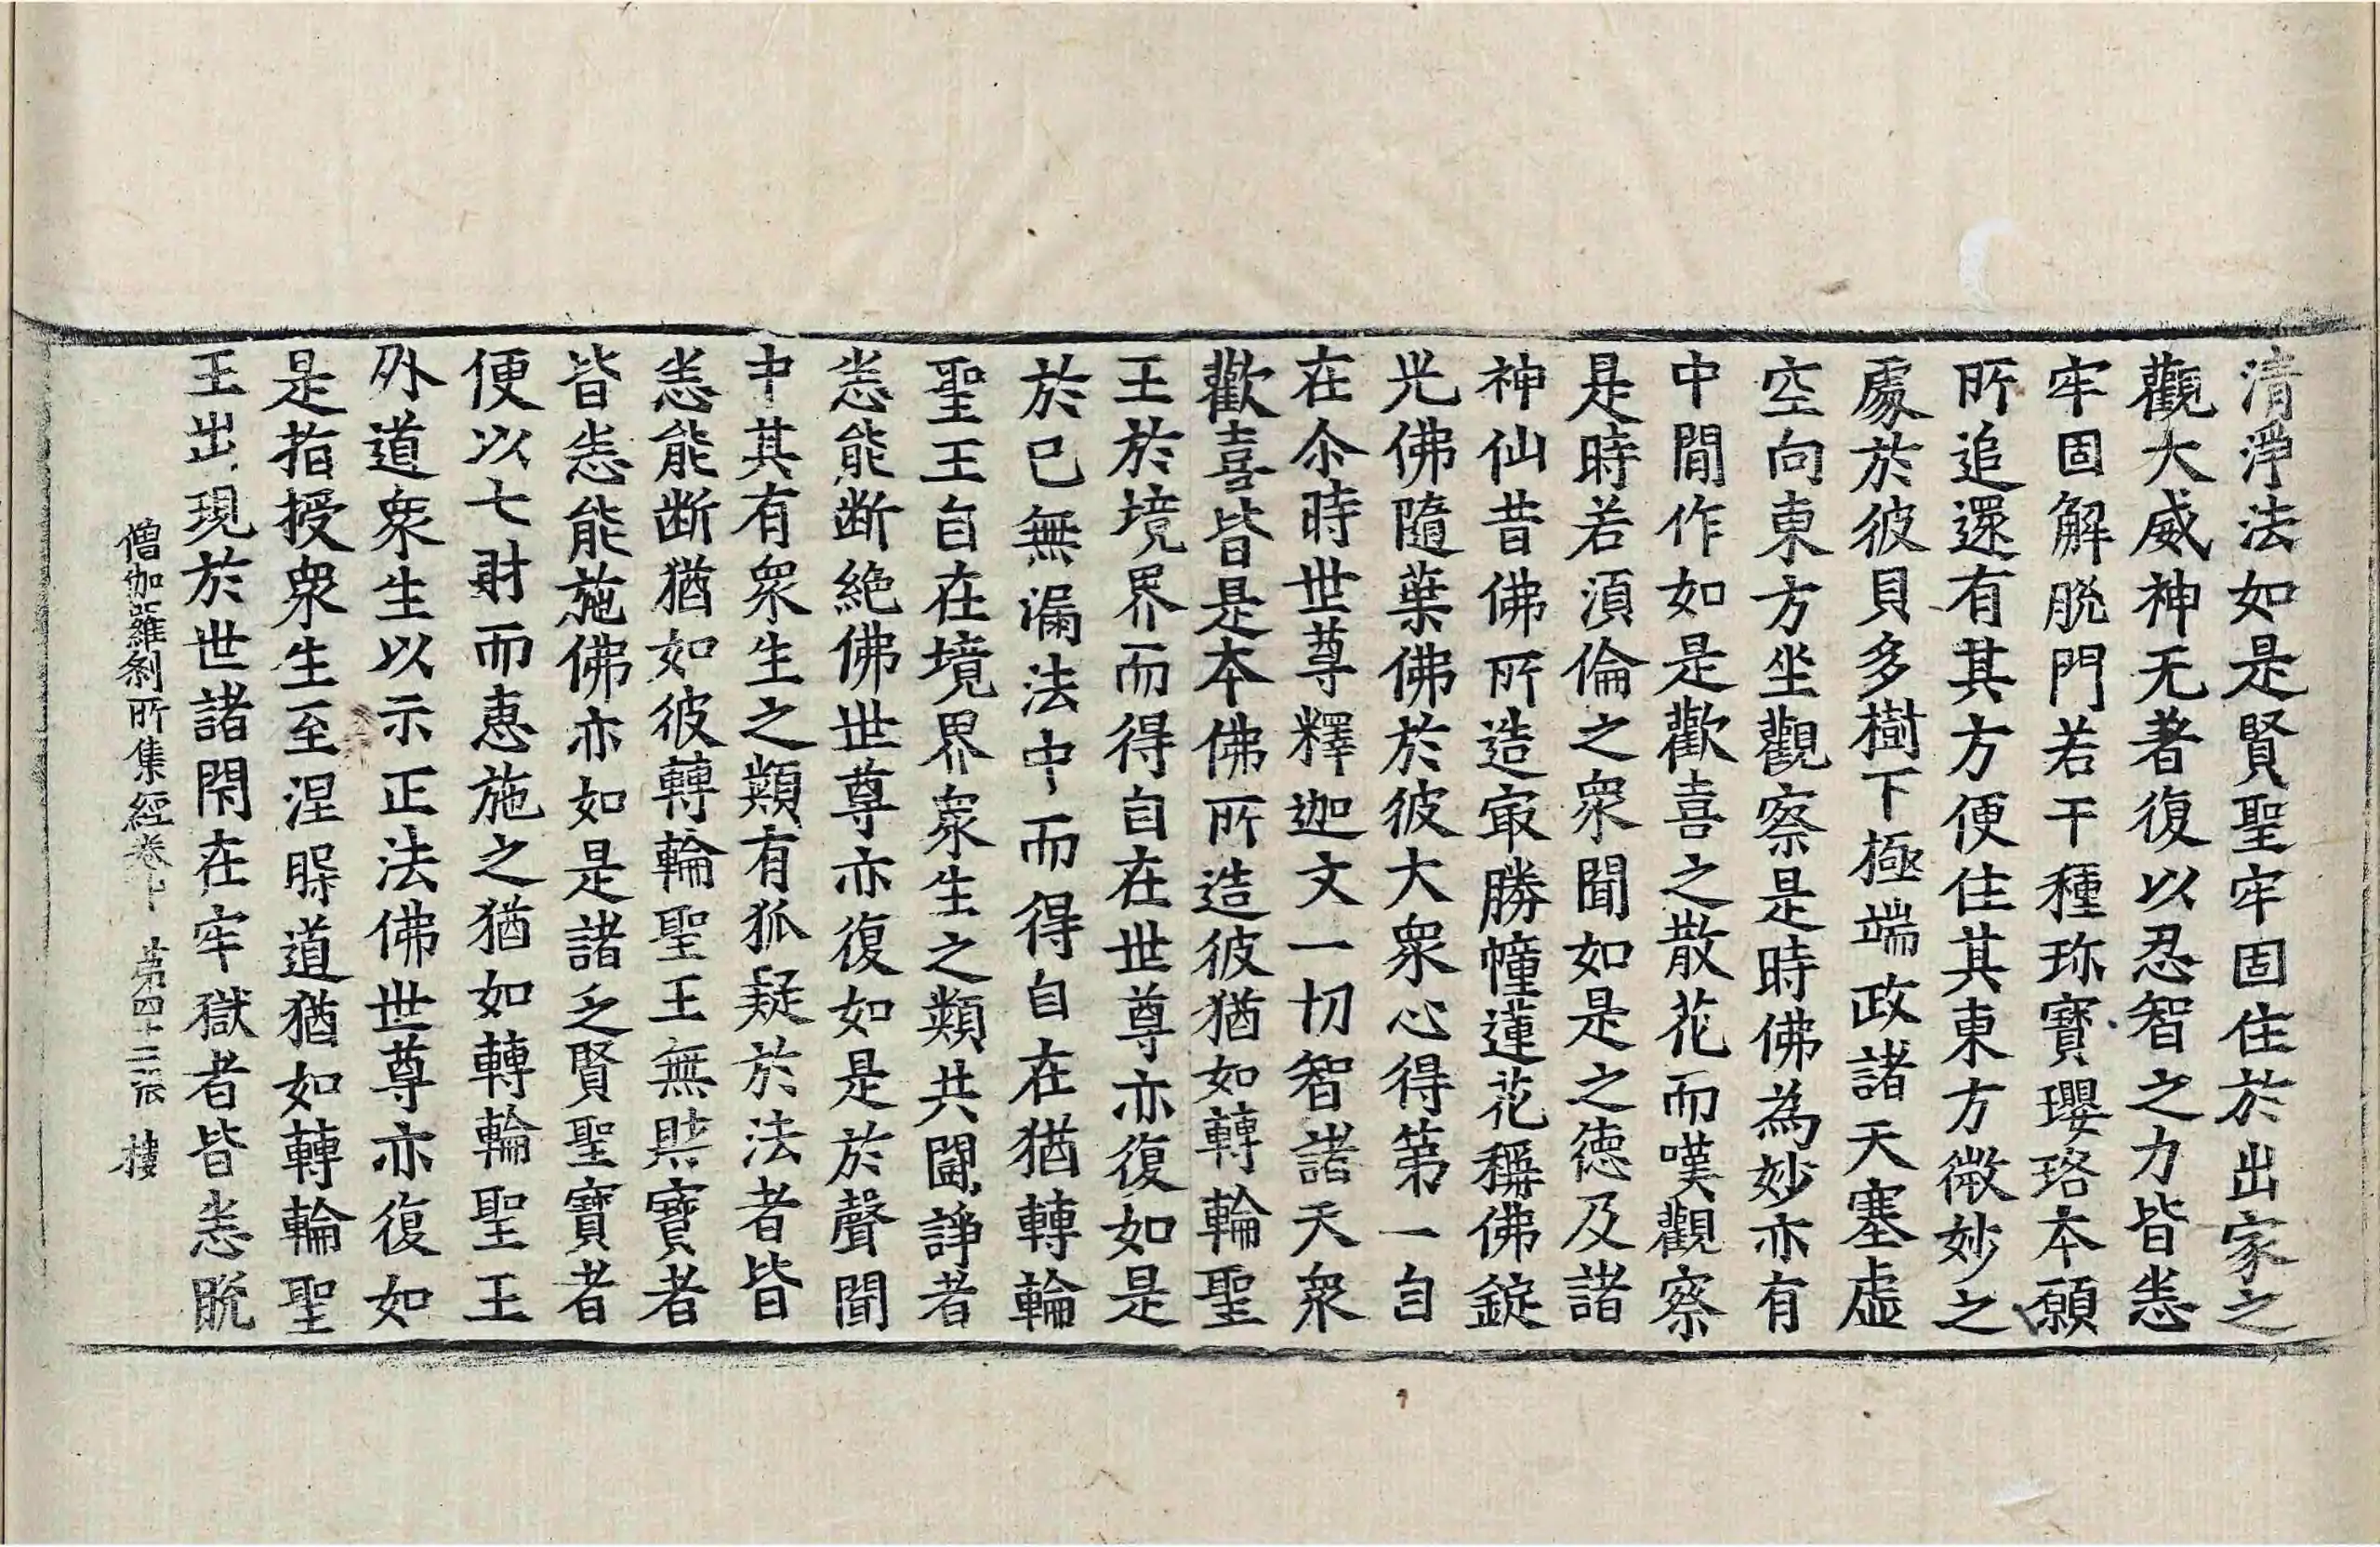 清淨法如是賢聖牢固住於出家之
觀大威神无著復以忍智之力皆悉
牢固解脫門若干種珎寶瓔珞本願
所追還有其方便住其東方微妙之
處於彼貝多樹下極端政諸天塞虛
空向東方坐觀察是時佛為妙亦有
中閒作如是歡喜之散花而嘆觀察
是時若湏倫之衆聞如是之德及諸
神仙昔佛所造㝡勝幢蓮花稱佛錠
光佛隨葉佛於彼大衆心得第一自
在尒時世尊釋迦文一切智諸天衆
歡喜皆是本佛所造彼猶如轉輪聖
王於境界而得自在世尊亦復如是
於已無漏法中而得自在猶轉輪
聖王自在境界衆生之類共鬪諍者
悉能断絶佛世尊亦復如是於聲聞
中其有衆生之類有狐疑於法者皆
悉能断猶如彼轉輪聖王無財寶者
皆悉能施佛亦如是諸乏賢聖寶者
便以七財而惠施之猶如轉輪聖王
外道衆生以示正法佛世尊亦復如
是指授衆生至涅槃道猶如轉輪聖
王出現於世諸閇在牢獄者皆悉脫
僧伽羅剎所集經卷下 第四十三張 樓